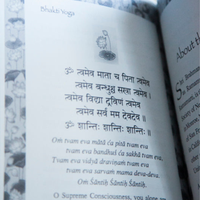 Shakti Yoga
ॐ त्वमेव माता च पिता त्वमेव
त्वमेव बन्धुश्च सखा त्वमेव
त्वमेव विद्या द्रविणं त्वमेव
त्वमेव सर्वं मम देवदेव॥
ॐ शान्तिः शान्तिः शान्तिः॥
Om tvam eva mātā ca pitā tvam eva
Tvam eva bandhuś ca sakhā tvam eva
Tvam eva vidyā draviṇaṁ tvam eva
Tvam eva sarvaṁ mama deva-deva.
Om Śāntiḥ Śāntiḥ Śāntiḥ.
O Supreme Consciousness, you alone are
About th